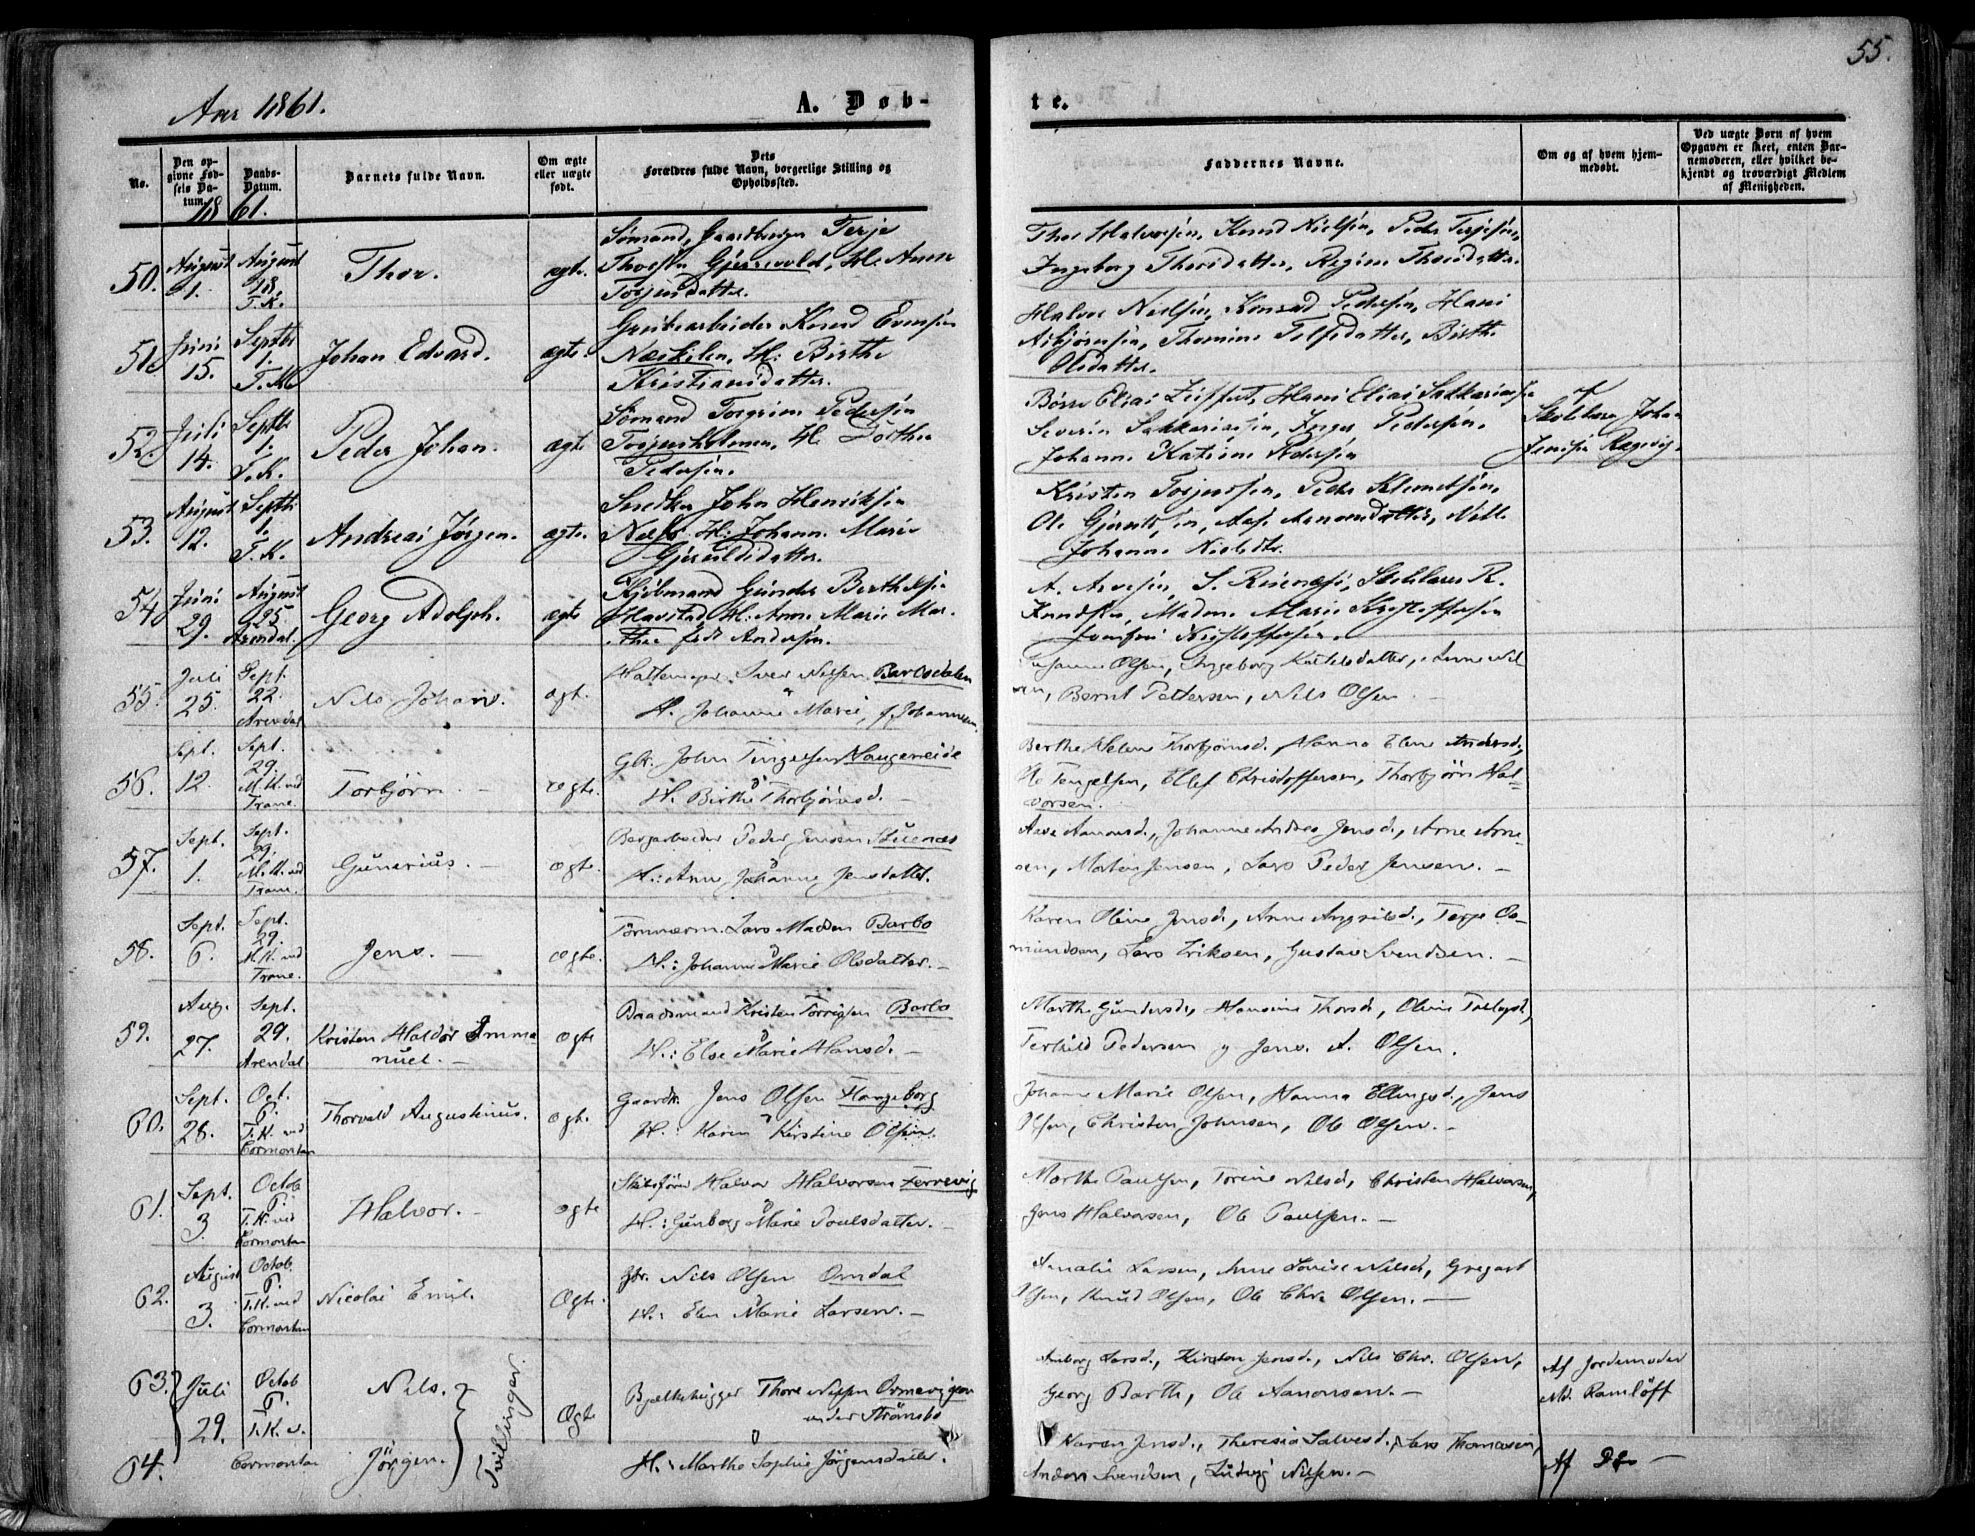 55.
Aar 1861.
A. Døb-
te.
No.
Den op-
givne Fød-
sels Da-
tum.
Daabs-
Datum.
Barnets fulde Navn.
Om ægte
eller uægte
født.
Dets
Forældres fulde Navn, borgerlige Stilling og
Opholdssted.
Faddernes Navne.
Om og af hvem hjem-
medøbt.
Ved uægte Børn af hvem
Opgaven er skeet, enten Bar-
nemoderen, eller hvilket be-
kjendt og troværdigt Medlem
af Menigheden.
1861.
50.
August
1.
August
18.
T.K.
Thor.
ægte.
Sømand, Gaardbruger Terje
Thorsen Gjerrevold, H. Anne
Torjusdatter.
Thor Halvorsen, Knud Nielsen, Peder Terjesen,
Ingeborg Thorsdatter, Regine Thorsdatter.
51.
Juni
15.
Septbr
1.
T.K.
Johan Edvard.
ægte.
Grubearbeider Knud Evensen
Næskilen, H: Birthe
Kristiansdatter.
Halvor Nielsen, Konrad Pedersen, Hans
Asbjørnsen, Thomine Tellefsdatter, Birthe
Olsdatter.
52.
Juli
14.
Septbr
1.
T.K.
Peder Johan.
ægte
Sømand Torgrim Pedersen
Torjusholmen, H. Dorthe
Pedersen.
Elias Zeiffert, Hans Elias Sakkariasen
Severin Sakkariassen, Inger Pedersen,
Johanne Katrine Pedersen
af
Skolelærer Johan
Jensen Rægevig.
53.
August
12.
Septbr
1.
T.K.
Andreas Jørgen.
ægte.
Snedker John Henriksen
H: Johanne Marie
Gjeruldsdatter.
Kristen Torjussen, Peder Klemetsen,
Ole Aase Aanonsdatter,
Johanne
54.
Juni
29.
August
25
Arendal.
Georg Adolph.
ægte
Kjøbmand Gunder Berthelsen
Havstad H: Anne Marie Mar-
the født Andersen.
A. Arnesen, S. Skolelærer K.
Knudsen, Madame Marie Kristoffersen
Kristoffersen.
55.
Juli
25.
Sept.
22.
Arendal
Nils Johan.
ægt.
Hattemager Iver Nilsen Barbodalen
H. Johanne Marie, f. Johannesen
Susanne Olsen, Ingeborg Ketilsdatter, Anne Nil
sen, Bernt Pettersen, Nils Olsen
56.
Sept.
12.
Sept.
29.
M.K. ved
Trane.
Torbjørn.
ægte.
Gbr. John Tengelsen Haugeneide
H. Birthe Thorbjørnsd.
Berthe Helene Thorbjørnsd., Hanna Elene Andersd.,
Ole Tengelsen, Ellef Christoffersen, Thorbjørn Hal-
vorsen.
57.
Sept.
1.
Sept.
29.
M.K. ved
Trane.
Gunerius.
ægte.
Bergarbeider Peder Jensen Stuenes
H.: Anne Johanne Jensdatter.
Aase Aanonsd., Johanne Andrea Jensd., Arne Arne-
sen, Morten Jensen, Lars Peder Jensen.
58.
Sept.
6.
Sept.
29.
M.K. ved
Trane.
Jens.
ægte.
Tømmerm. Lars Madsen Barbo
H.: Johanne Marie Olsdatter.
Karen Oline Jensd., Anne Terje Os-
mundsen, Lars Eriksen, Gustav Svendsen.
59.
Aug.
27.
Sept.
29.
Arendal
Kristen Haldor Emma
nuel.
ægte
Baadsmand Kristen Torrissen Barbo
H.: Else Marie Hansd.
Marthe Gundersd., Hansine Thorsd., Oline
Terkild Pedersen og Jens. A. Olsen.
60.
Sept.
28.
Oct.
6.
T.K. ved
Cormontan
Thorvald Augustinus.
ægte.
Gaardbr. Jens Olsen Hangeborg
H.: Karen Kirstine Olsen.
Johanne Marie Olsen, Hanna Ellingsd., Jens
Olsen, Christen Johnsen, Ole Olsen.
61.
Sept.
3.
Octob
6.
T.K. ved
Cormontan
Halvor.
ægte
Skibsfører Halvor Halvorsen Ferrevig
H.: Gunborg Marie Poulsdatter.
Marthe Paulsen, Torine Nilsd., Christen Halvorsen,
Jens Halvorsen, Ole Paulsen.
62.
August
3.
Octob.
6.
T.K. ved
Cormontan
Nicolai Emil.
Ægte.
Gbr. Nils Olsen Omdal
H.: Elen Marie Larsen.
Amalie Larsen, Anne Lovise Nilsd., Gregert
Olsen, Knud Olsen, Ole Chr. Olsen.
63.
Juli
29.
Octob
6.
T.K. v.
Cormontan
Nils.
Tvillinger.
Ægte
Bjelkehugger Thore Nilsen Ormevigen
under Strømsbo
Larsd., Kirsten Jensd., Nils Chr. Olsen,
Georg Barth, Ole Aanonsen.
Af Jordemoder
Md. Ramløff
64.
Jörgen.
H.: Marthe Sophie Jörgensdatter.
Karen Jensd., Theresia Salvesd., Lars Thomassen,
Anders Svendsen, Ludvig Nilsen.
Af Do